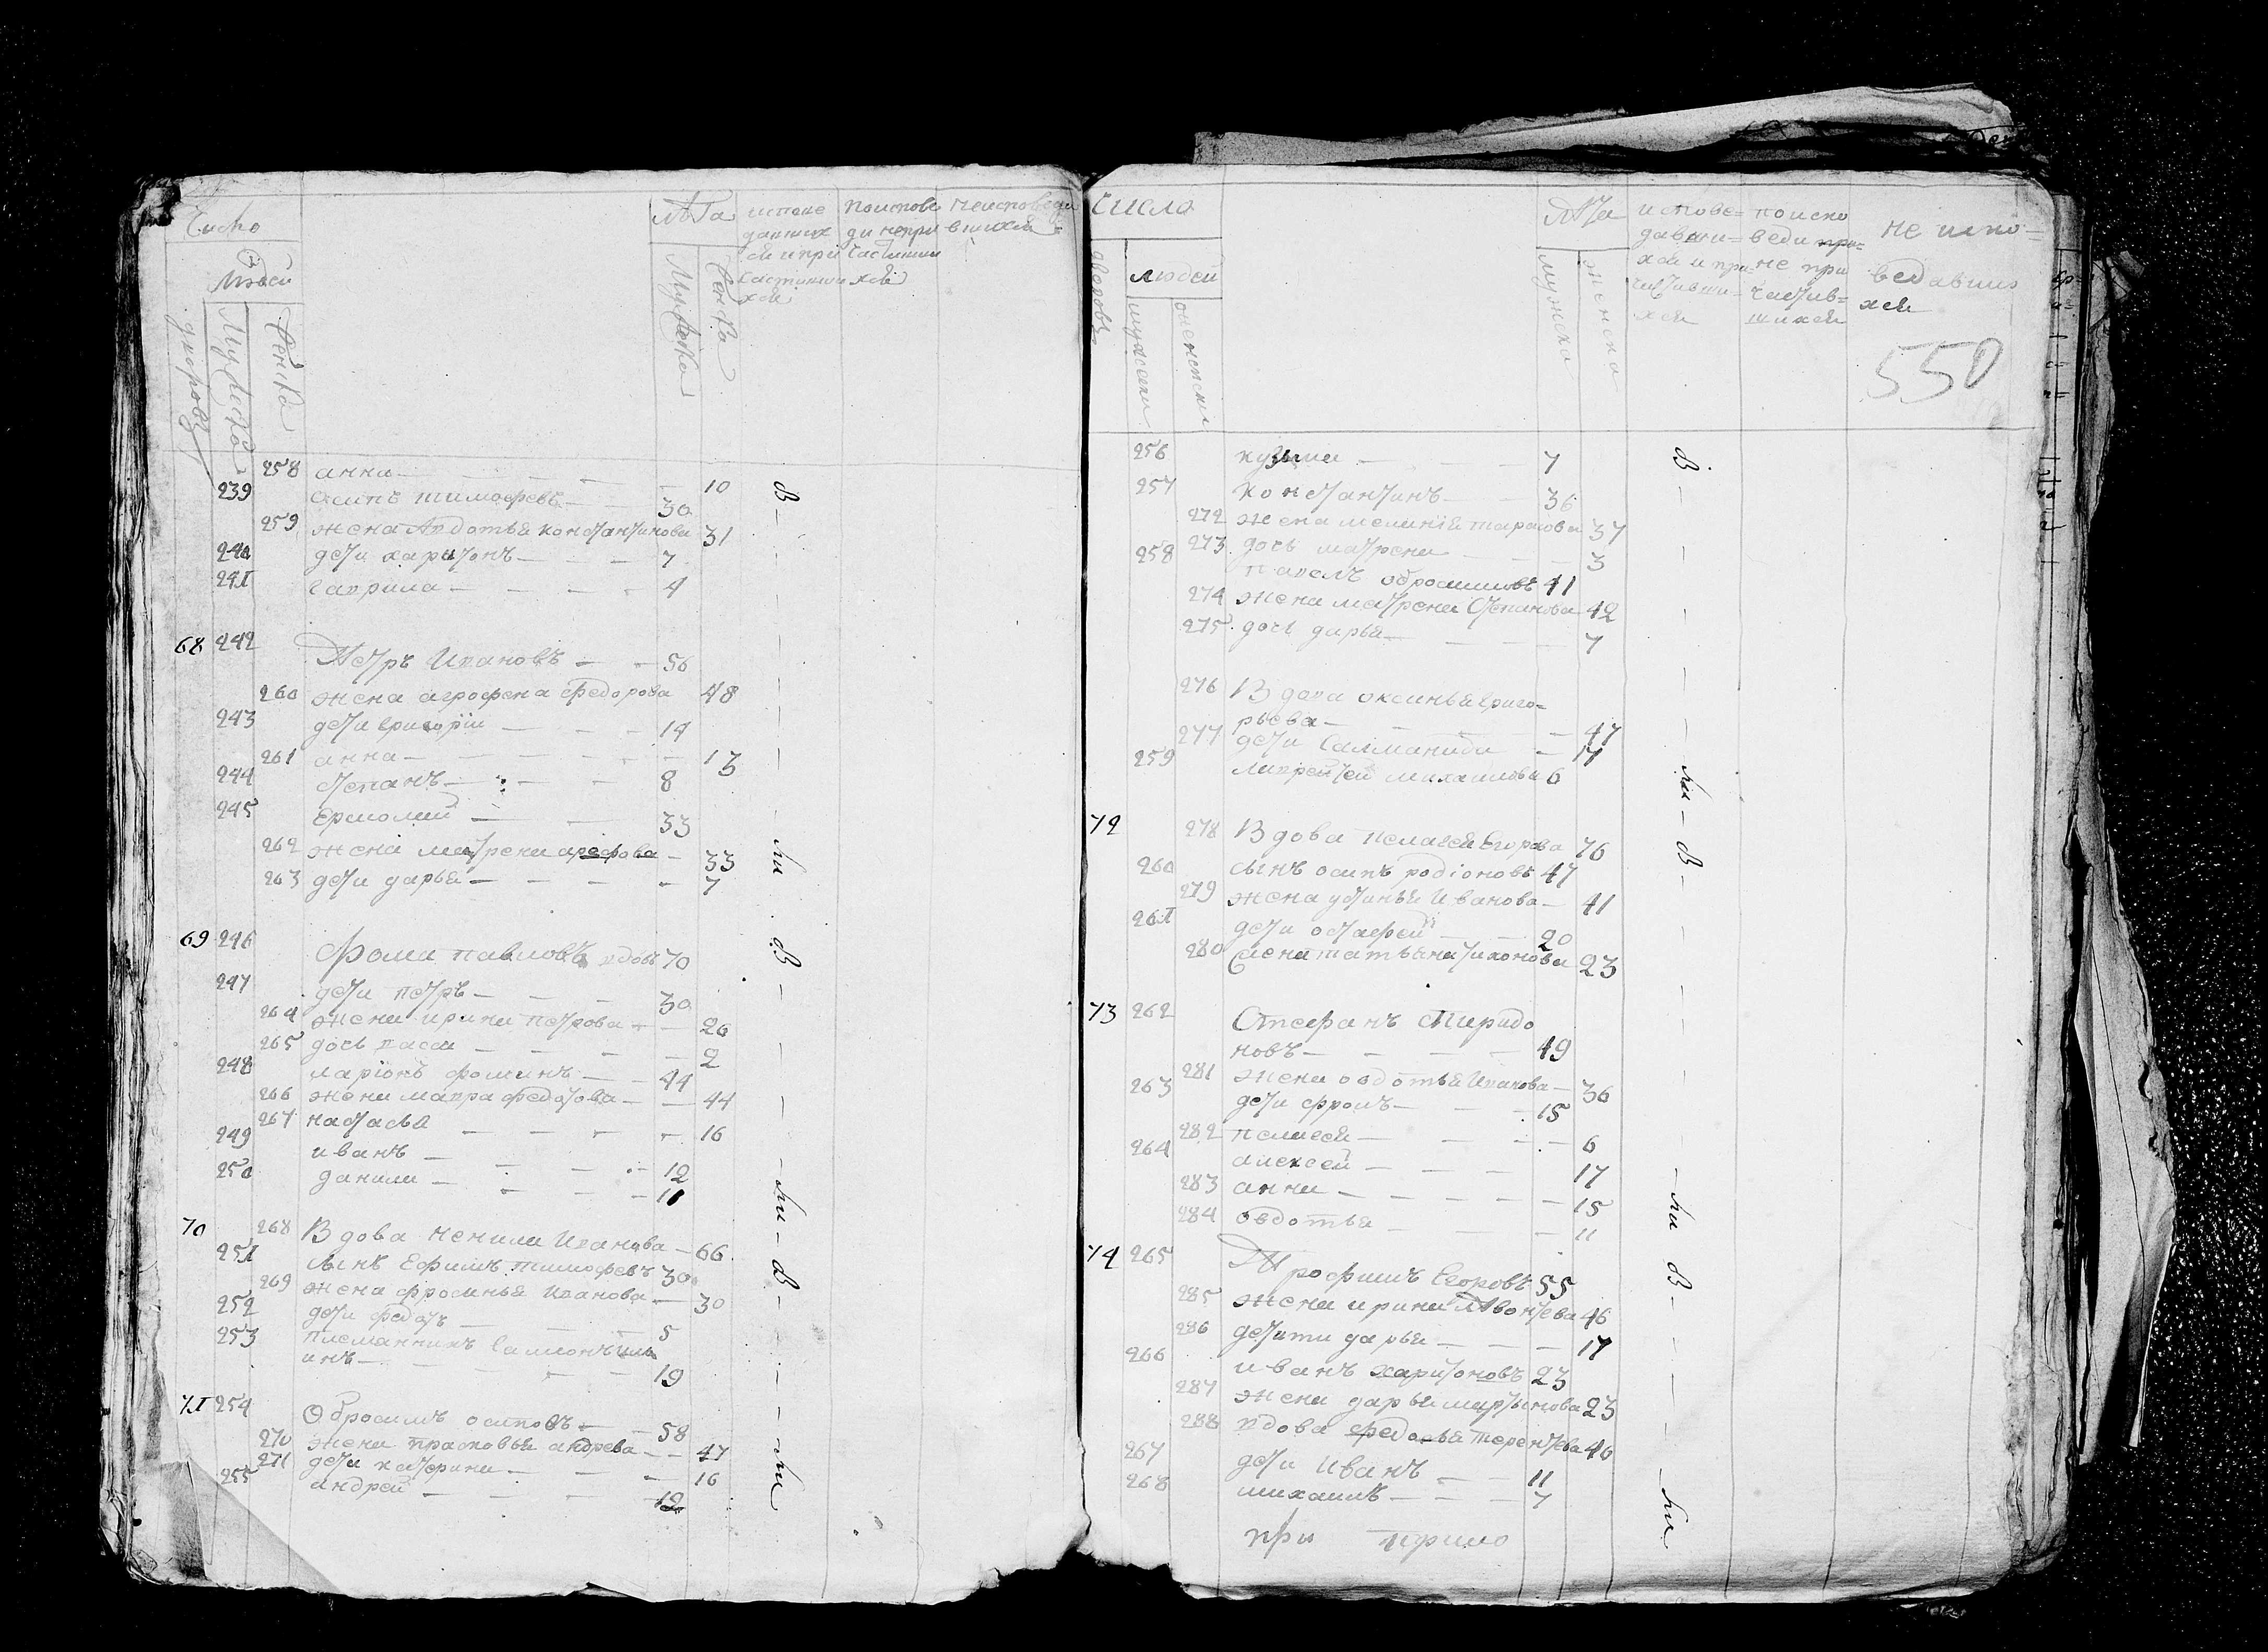 Число
Людей
дворовъ
Мужеска
Женска
лѣта
Мужеска
Женска
испове
давших
ся и при
частивши
хся
поиспове
ди непри
частивши
хся
неисповеда
вшихся
258 анна — 10
239 осипъ тимофѣевъ — 30
259 жена Авдотья константинова 31
240 дети харитонъ — 7
241 гаврила — 4
68 242 Петръ Ивановъ — 56
260 жена агрофена Федорова 48
243 дети григорiи — 14
261 анна — 13
244 степанъ — 8
245 Ермолаи — 33
262 жена матрена арефова — 33
263 дети дарья — 7
69 246 Фома павловъ вдовъ 70
247 дети петръ — 30
264 жена ирина петрова — 26
265 дочь васса — 2
248 ларiонъ фоминъ — 44
266 жена мавра федотова — 44
267 настасья — 16
249 иванъ — 12
250 данила — 11
70 268 Вдова ненила Иванова — 66
251 сынъ Ефимъ тимофевъ 30
269 жена фросинья Иванова — 30
252 дети федотъ — 5
253 племянникъ самсонъ
инъ — 19
71 254 Обросимъ осиповъ — 58
270 жена прасковья андрева — 47
271 дети катерина — 16
255 андрей — 12
В — ли
В — ли
В — ли
Число
дворовъ
людей
мужеска
женска
лѣта
мужеска
женска
испове=
давши=
хся и при=
частивши=
хся
поиспо
веди
не при
частив=
шихся
не испо=
ведавших
хся
550
256 кузма — 7
257 константинъ — 36
272 жена меланiя тарасова 37
273 дочь матрена — 3
258 павелъ обросимовъ 41
274 жена матрена Степанова 42
275 дочь дарья — 7
276 Вдова оксинья григо=
рьева — 47
277 дети Саломанида — 17
259 лаврентей михаиловъ 6
72 278 Вдова пелагея Егорова 76
260 сынъ осипъ родiоновъ 47
279 жена устинья Иванова — 41
261 дети остафей — 20
280 жена татьяна тихонова 23
73 262 Стефанъ спиридо
новъ — 49
281 жена овдотья Иванова — 36
263 дети фролъ — 15
282 пелагея — 6
264 алексей — 17
283 анна — 15
284 овдотья — 11
74 265 Трофимъ Егоровъ 55
285 жена ирина Лвонтева 46
286 дети дарья — 17
266 иванъ харитоновъ 23
287 жена дарья мартынова 23
288 вдова федосья терентева 46
267 дети Иванъ — 11
268 михаилъ — 7
В — ли
В — ли
В — ли
при